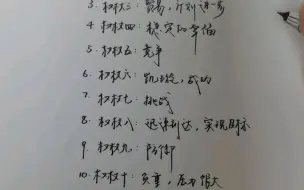 3. 权杖三：贸易，计划进一步
4. 权杖四：稳定和幸福
5. 权杖五：竞争
6. 权杖六：凯旋，成功
7. 权杖七：挑战
8. 权杖八：迅速到达，实现目标
9. 权杖九：防御
10. 权杖十：负重，压力很大